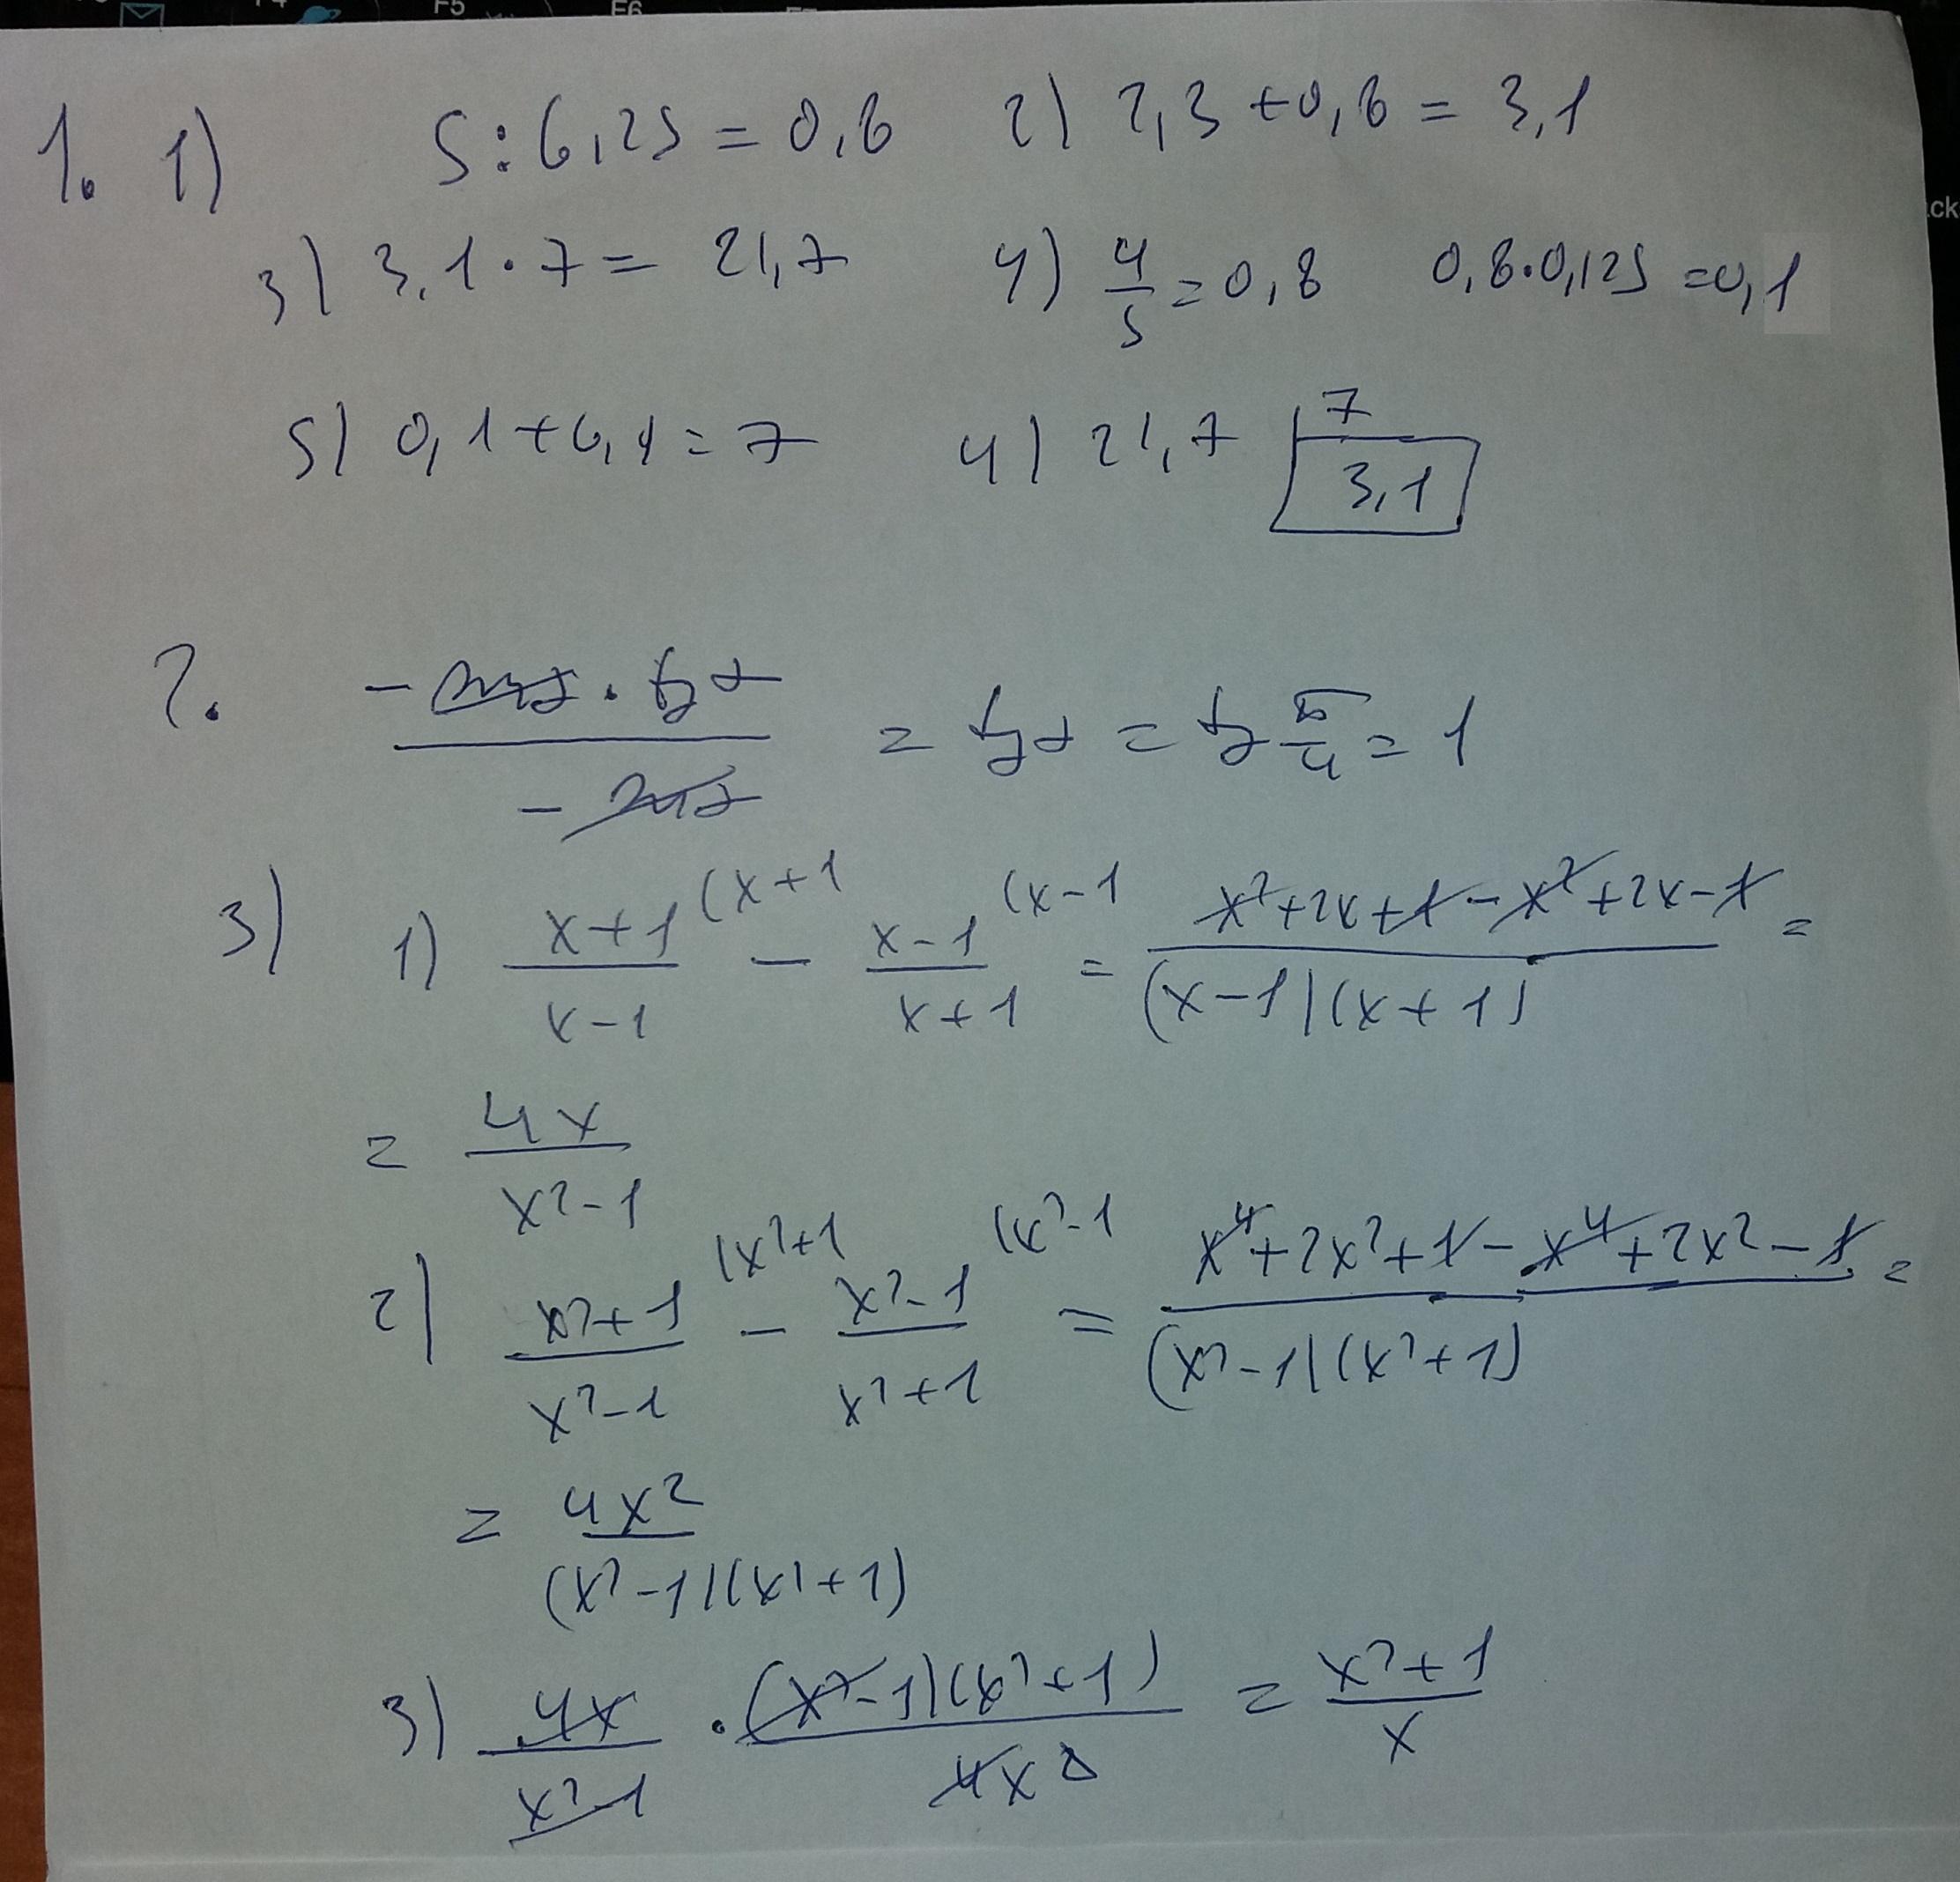 F5 F6
1. 1) 5:6,25 = 0,8 2) 2,3 + 0,8 = 3,1
3) 3,1 · 7 = 21,7 4) 4/5 = 0,8 0,8·0,125 = 0,1
5) 0,1 + 6,9 = 7 4) 21,7 | 7
3,1
2. (-sinα · tgα)/(-sinα) = tgα = tg π/4 = 1
3) 1) (x+1)/(x-1) (x+1 - (x-1)/(x+1) (x-1 = (x²+2x+1-x²+2x-1)/((x-1)(x+1)) =
= 4x/(x²-1)
2) (x²+1)/(x²-1) (x²+1 - (x²-1)/(x²+1) (x²-1 = (x⁴+2x²+1-x⁴+2x²-1)/((x²-1)(x²+1)) =
= 4x²/((x²-1)(x²+1))
3) 4x/(x²-1) · ((x²-1)(x²+1))/(4x²) = (x²+1)/x